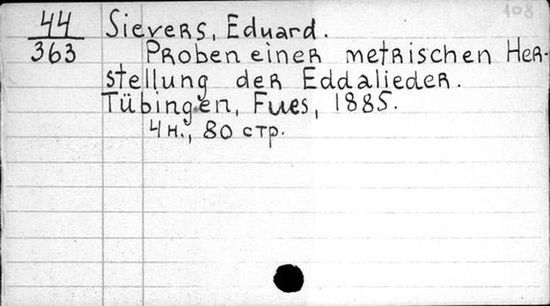 108
44 Sievers, Eduard.
363 Proben einer metrischen Her-
stellung der Eddalieder.
Tübingen, Fues, 1885.
4 н., 80 стр.